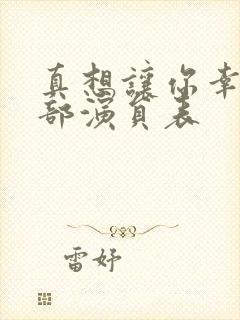 真想讓你幸
部演員表
雷妤